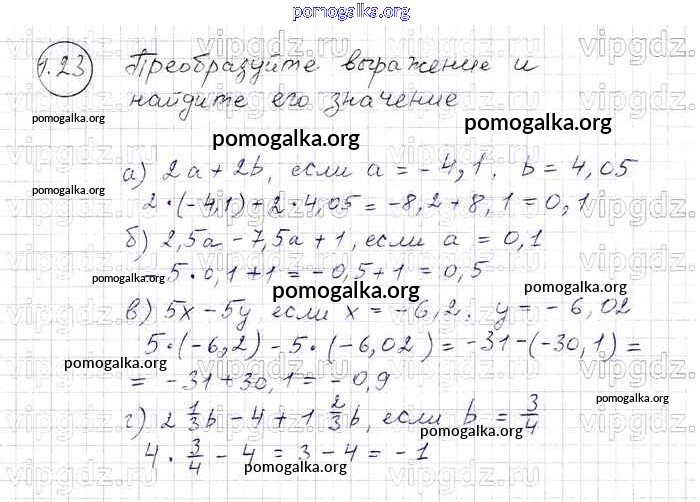 pomogalka.org
1.23 Преобразуйте выражение и
найдите его значение
pomogalka.org
pomogalka.org
pomogalka.org
а) 2a + 2b, если a = -4,1. b = 4,05
pomogalka.org
2·(-4,1)+2·4,05 = -8,2+8,1 = 0,1
б) 2,5a - 7,5a + 1, если a = 0,1
- 5·0,1+1 = -0,5+1 = 0,5
pomogalka.org
pomogalka.org
pomogalka.org
в) 5x - 5y если x = -6,2. y = -6,02
5·(-6,2) - 5·(-6,02) = -31-(-30,1) =
pomogalka.org
= -31+30,1 = -0,9
pomogalka.org
г) 2 1/3 b - 4 + 1 2/3 b, если b = 3/4
pomogalka.org
4 · 3/4 - 4 = 3 - 4 = -1
pomogalka.org
vipgdz.ru